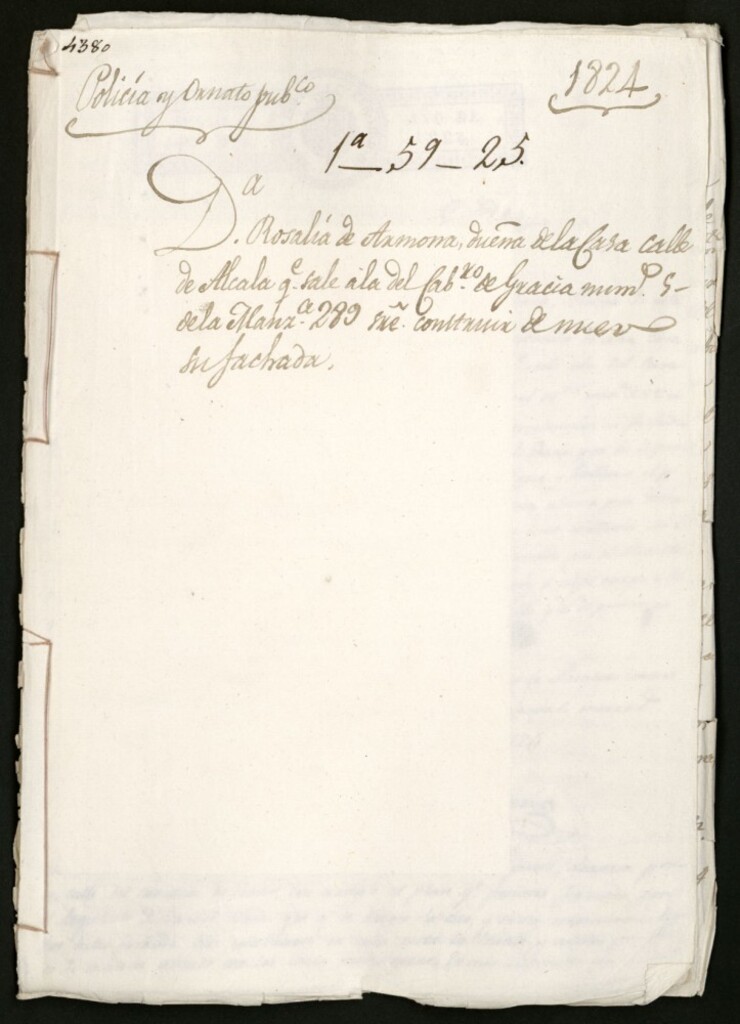 4380
Policía y Ornato pub.co
1824
1.a - 59 - 25.
D.a Rosalía de Armona, dueña de la Casa calle
de Alcala q.e sale ála del Cab.ro de Gracia num.o 5
dela Manz.a 289 sre. construir de nuevo
su fachada.